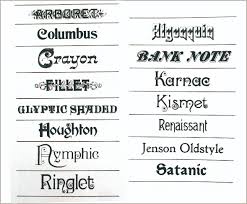 ARBORET
Columbus
Crayon
FILLET
GLYPTIC SHADED
Houghton
Nymphic
Ringlet
Algonquin
BANK NOTE
Karnac
Kismet
Renaissant
Jenson Oldstyle
Satanic